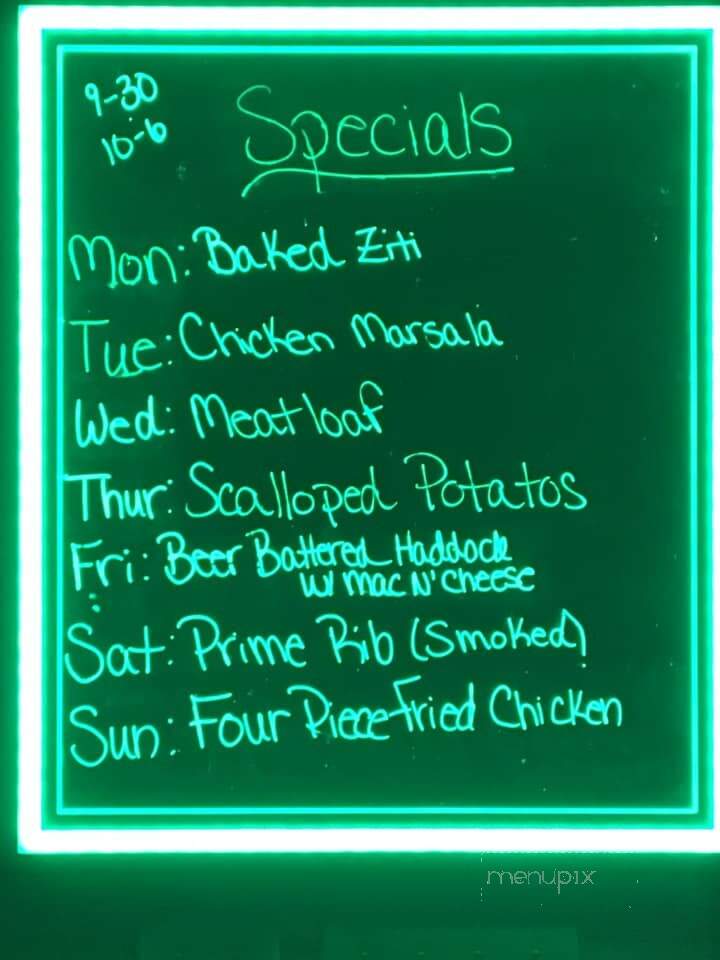 9-30
10-6
Specials
Mon: Baked Ziti
Tue: Chicken Marsala
Wed: Meatloaf
Thur: Scalloped Potatos
Fri: Beer Battered Haddock
W/ Mac N' Cheese
Sat: Prime Rib (Smoked)
Sun: Four Piece Fried Chicken
menupix